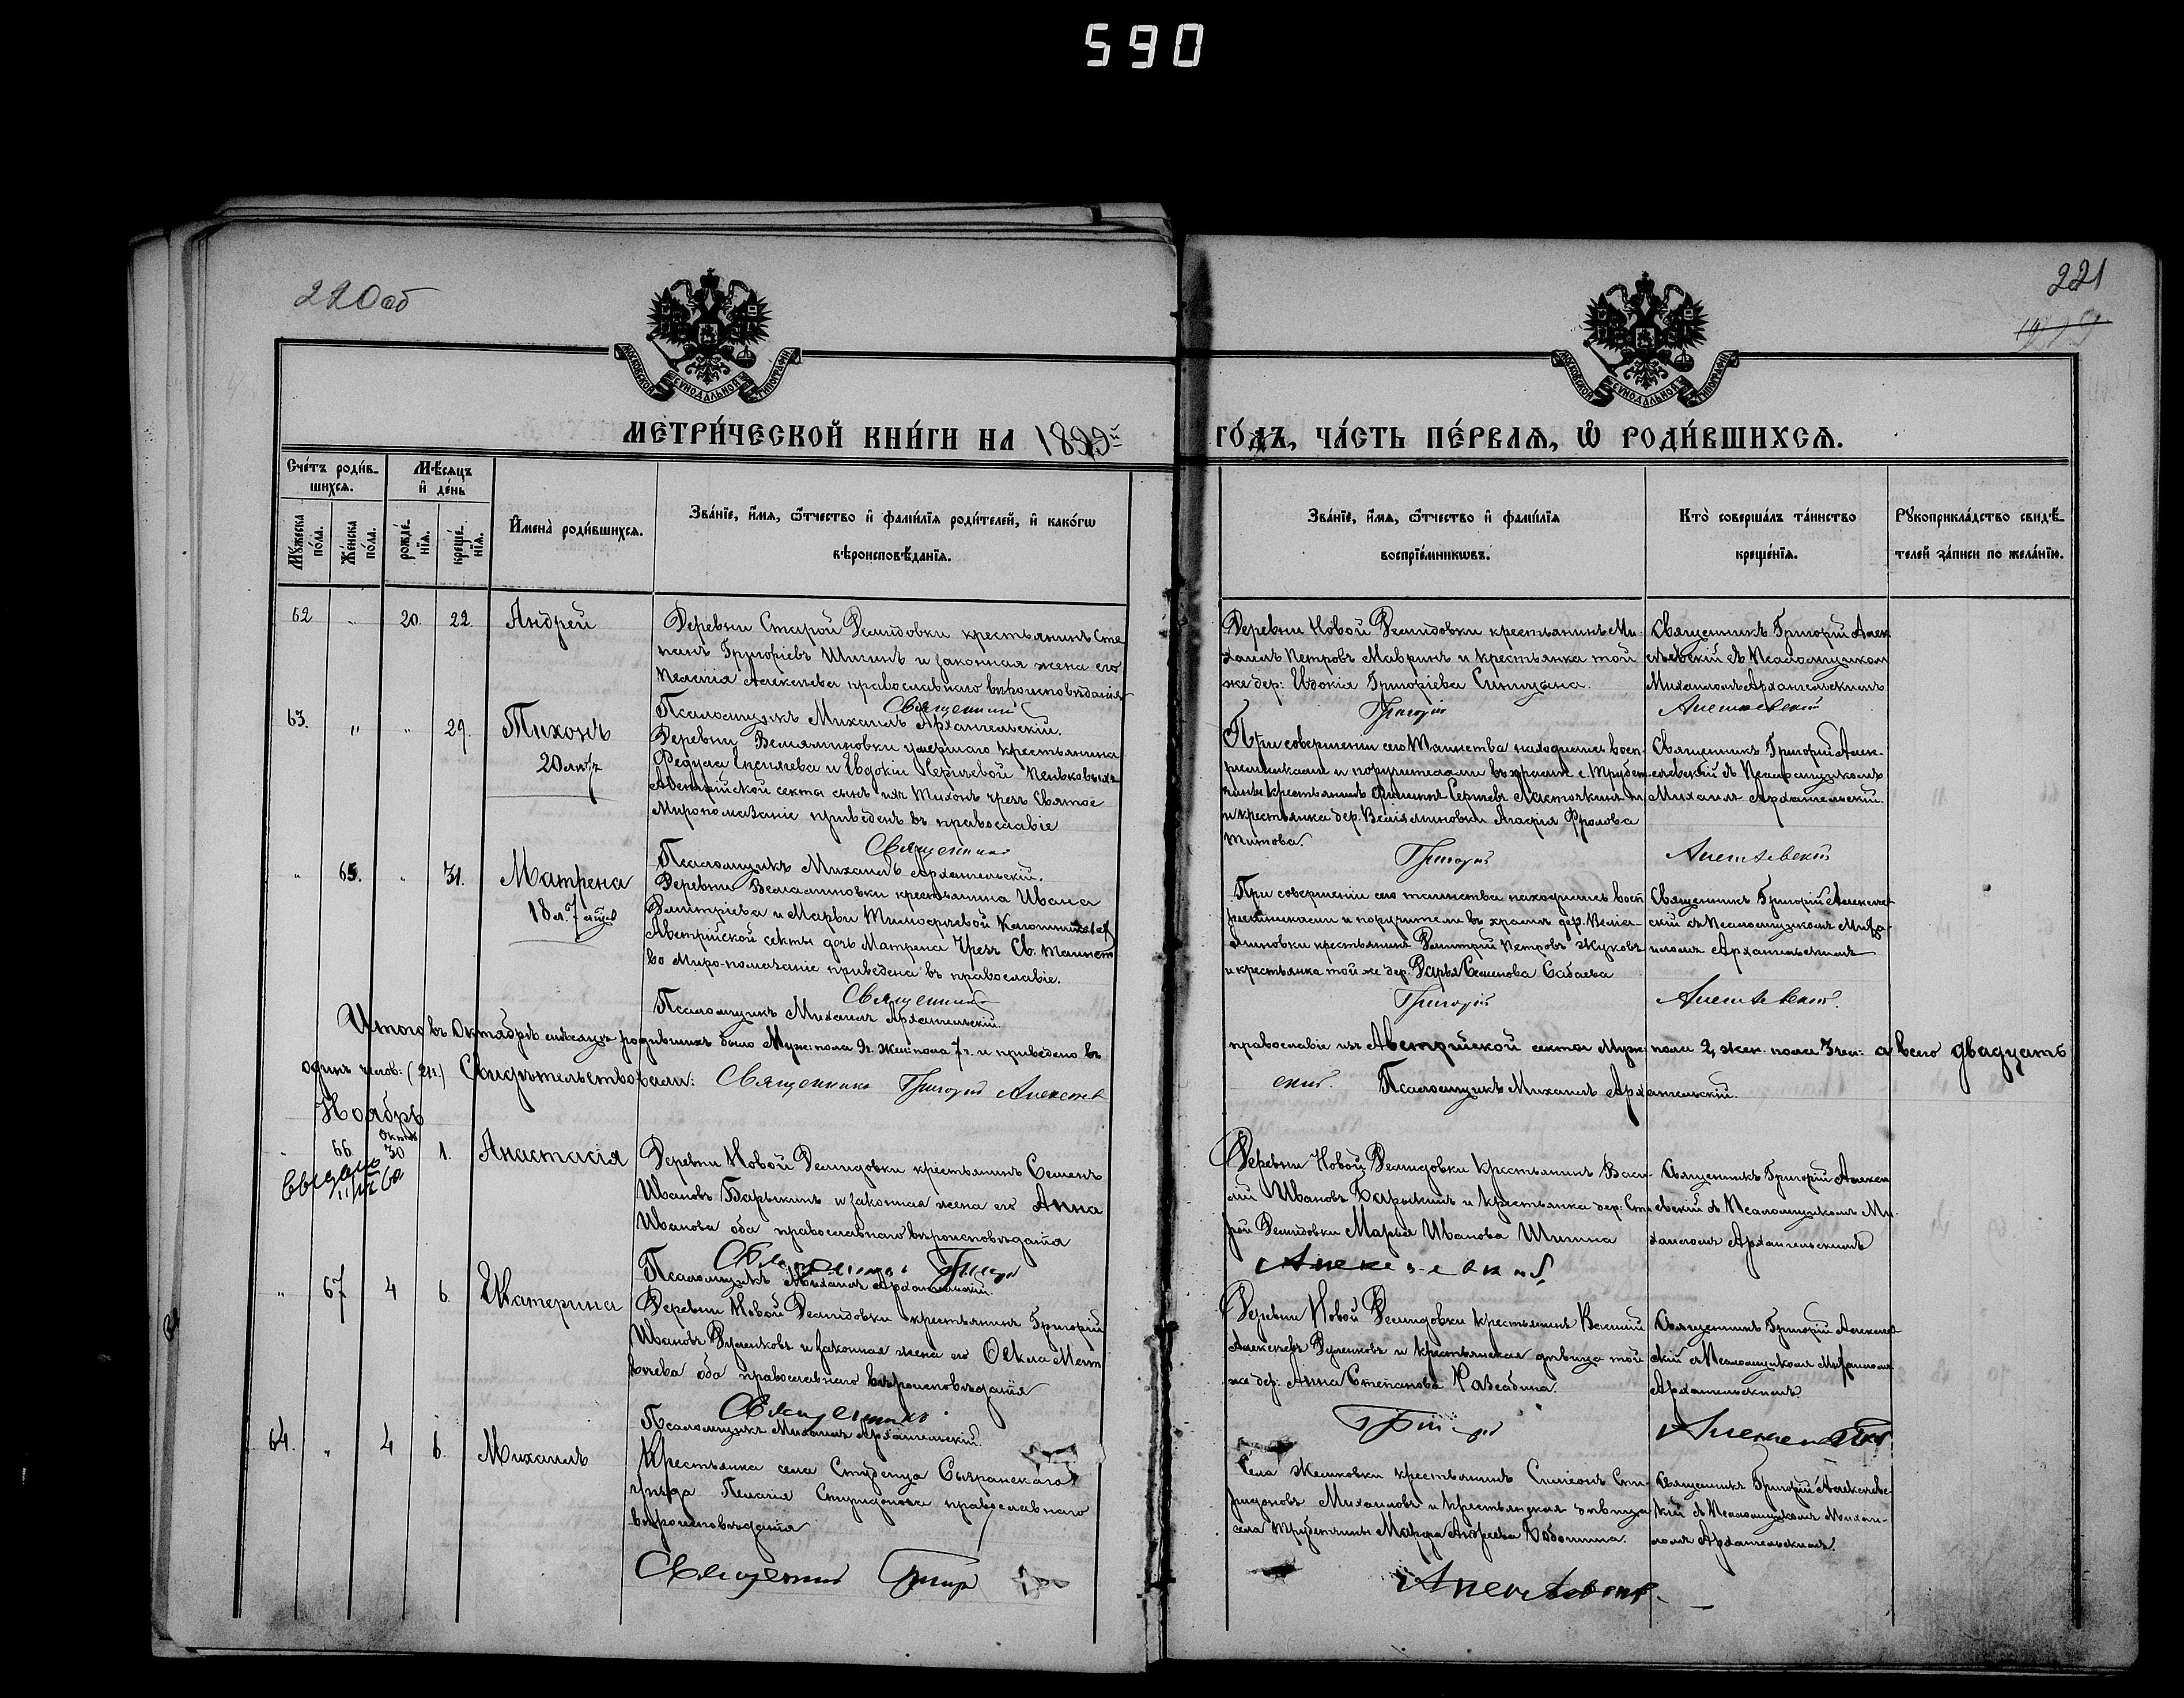 590
220об
221
МОСКОВСКОЙ СѴНОДАЛЬНОЙ ТИПОГРАФІИ
МОСКОВСКОЙ СѴНОДАЛЬНОЙ ТИПОГРАФІИ
МЕТРИ́ЧЕСКОЙ КНИ́ГИ НА 1899й
ГО́ДЪ, ЧА́СТЬ ПЕ́РВАѦ, Ѡ҆ РОДИ́ВШИХСѦ.
Сче́тъ роди́в-
шихсѧ.
Мѣ́сѧцъ
и҆ де́нь
Мꙋ́жеска по́ла.
Же́нска по́ла.
рожде́нїѧ.
креще́нїѧ.
И҆мена̀ роди́вшихсѧ.
Зва́нїе, и҆́мѧ, ѻ҆́тчество и҆ фами́лїѧ роди́телей, и҆ како́гѡ
вѣроисповѣ́данїѧ.
Зва́нїе, и҆́мѧ, ѻ҆́тчество и҆ фами́лїѧ
воспрїе́мникѡвъ.
Кто̀ соверша́лъ та́инство
креще́нїѧ.
Рꙋкоприкла́дство свидѣ́-
телей за́писи по жела́нїю.
62 " 20. 22 Андрей
Деревни Старой Демидовки крестьянинъ Сте
панъ Григоріевъ Шишинъ и законная жена его
Пелагія Алексѣева православнаго вѣроисповѣданія
Священникъ
Псаломщикъ Михаилъ Архангельскій.
Деревни Новой Демидовки крестьянинъ Ми-
хаилъ Петровъ Мавринъ и крестьянка той
же дер: Евдокія Григоріева Синицына.
Григорій
Священникъ Григорій Алек
сѣевскій съ Псаломщикомъ
Михаиломъ Архангельскимъ
Алексѣевскій
63. " " 29. Тихонъ
20 лѣтъ
Деревни Веньяминовки умершаго крестьянина
Федула и Евдокіи Сергѣевой Пеньковыхъ
Австрійской секты сынъ ихъ Тихонъ чрезъ Святое
Миропомазаніе приведенъ въ православіе
Священникъ
Псаломщикъ Михаилъ Архангельскій.
При совершеніи сего Таинства находились восп-
ріемниками и поручителями въ храмѣ с. Трубет
чины крестьянинъ Филиппъ Сергѣевъ Ласточкинъ
и крестьянка дер. Веньяминовки Агафія Фролова
Титова.
Григорій
Священникъ Григорій Алек-
сѣевскій съ Псаломщикомъ
Михаилъ Архангельскій.
Алексѣевскій
" 65. " 31. Матрена
18 л. 7 мѣсяцев
Деревни Веньаминовки крестьянина Ивана
Дмитріева и Марьи Тимофѣевой
Австрійской секты дочь Матрена Чрезъ Св. таинст
во Миро-помазаніе приведена въ православіе.
Священникъ
Псаломщикъ Михаилъ Архангельскій.
При совершеніи сего таинства находились восп
ріемниками и поручители въ храмѣ дер. Вениа-
миновки крестьянинъ Дмитрій Петровъ Жуковъ
и крестьянка той же дер. Дарья Семенова Сабаева
Григорій
Священникъ Григорій Алексѣев
скій съ Псаломщикомъ Миха
иломъ Архангельскимъ
Алексѣевскій.
Итого въ Октябрѣ мѣсяцѣ родившихъ было Муж: пола 9 ч. жен: пола 7 ч. и приведено въ
православіе изъ Австрійской секты Муж: пола 2, жен. пола 3 чел: а всего двадцать
одинъ челов: (21.) Свидѣтельствовали: Священникъ Григорій Алексѣев
скій. Псаломщикъ Михаилъ Архангельскій.
Ноябрь
" 66. Октяб 30 1. Анастасія
Выдано
Деревни Новой Демидовки крестьянинъ Семенъ
Ивановъ Барыкинъ и законная жена его Анна
Иванова оба православнаго вѣроисповѣданія
Священникъ Григор
Псаломщикъ Михаилъ Архангельскій.
Деревни Новой Демидовки крестьянинъ Васи-
лій Ивановъ Барыкинъ и крестьянка дер: Ста
рой Демидовки Марья Иванова Шишина
Алексѣевскій
Священникъ Григорій Алексѣ
евскій съ Псаломщикомъ Ми-
хаиломъ Архангельскимъ
" 67 4 6. Екатерина
Деревни Новой Демидовки крестьянинъ Григорій
Ивановъ Руменковъ и законная жена его Ѳекла Мат
вѣева оба православнаго вѣроисповѣданія
Священникъ
Псаломщикъ Михаилъ Архангельскій.
Деревни Новой Демидовки крестьянинъ Василій
Алексѣевъ Руменковъ и крестьянская дѣвица той
же дер: Анна Степанова
Григорій
Священникъ Григорій Алексѣев
скій съ Псаломщикомъ Михаиломъ
Архангельскимъ.
Алексѣевскій
64. " 4 6. Михаилъ
Крестьянка села Студенца Сызранскаго
уѣзда Пелагія Спиридонова православнаго
вѣроисповѣданія
Священникъ Григор
Села Жемковки крестьянинъ Симеонъ Спи-
ридоновъ Михаиловъ и крестьянская дѣвица
села Трубетчины Марфа Андреева
Алексѣевскій.
Священникъ Григорій Алексѣевс-
кій съ Псаломщикомъ Михаи-
ломъ Архангельскимъ.